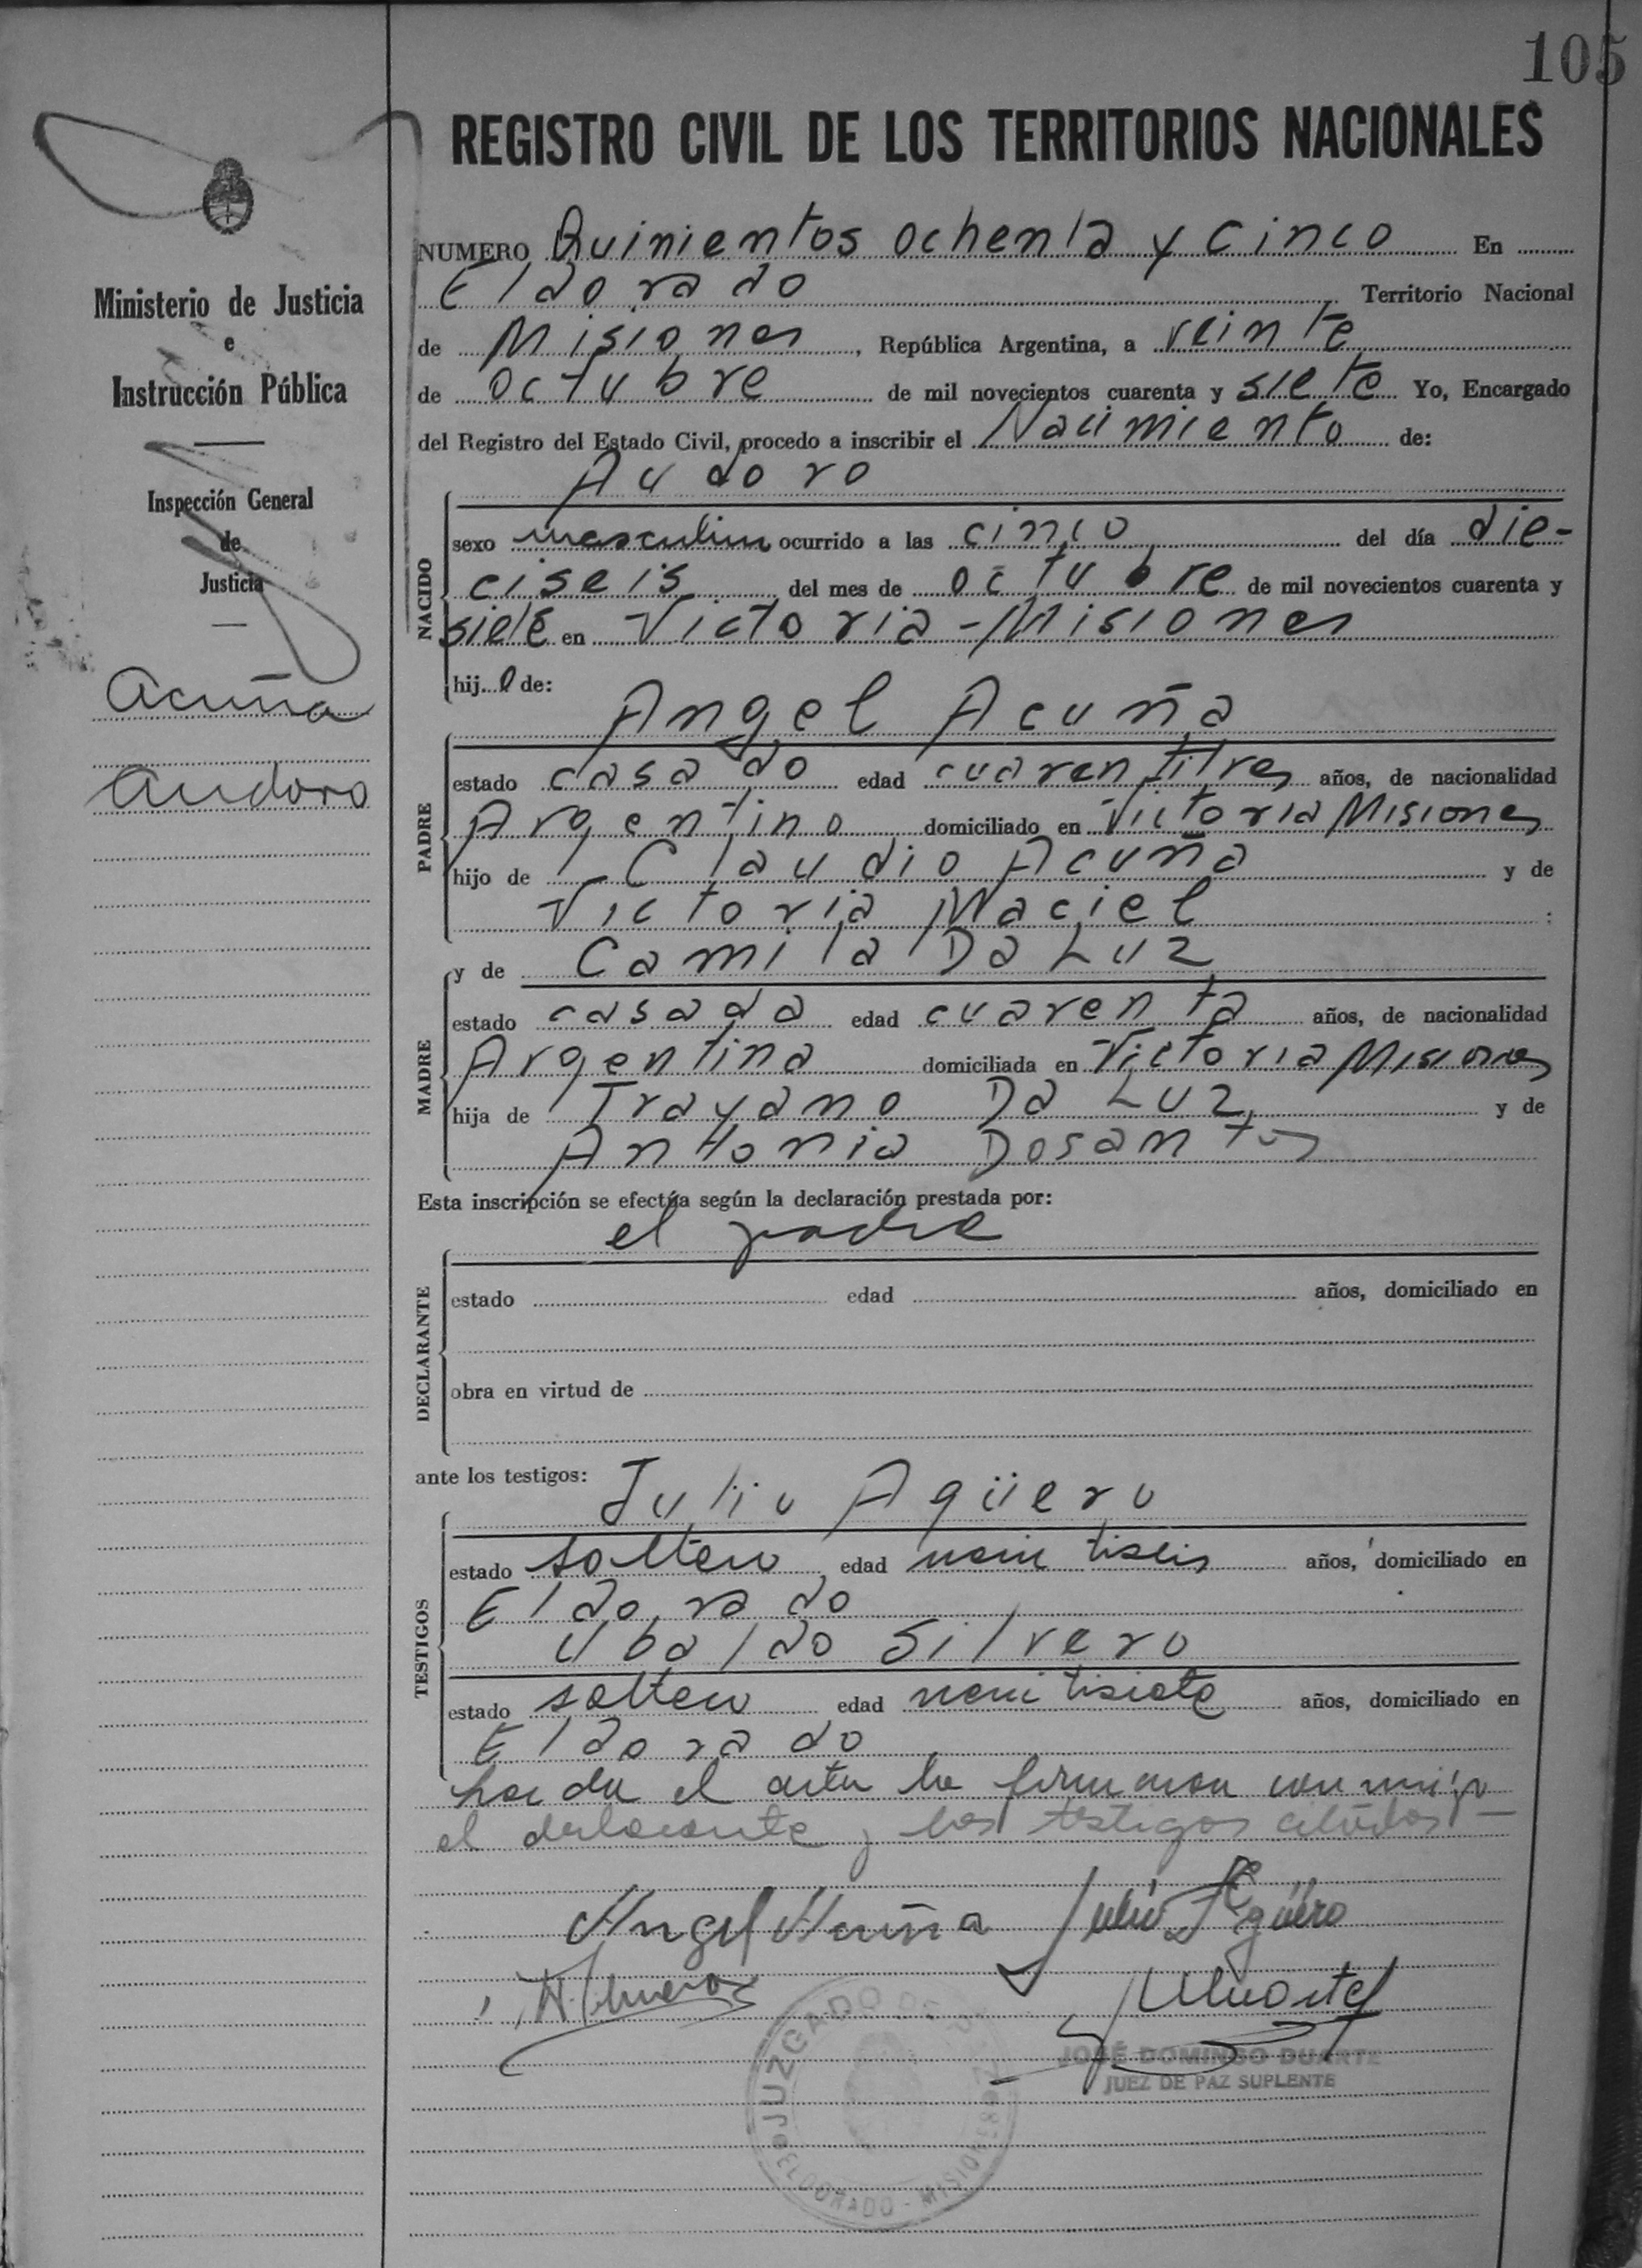 105
REGISTRO CIVIL DE LOS TERRITORIOS NACIONALES
Ministerio de Justicia
e
Instrucción Pública
Inspección General
de
Justicia
Acuña
Audoro
NUMERO Quinientos ochenta y cinco En
Eldorado Territorio Nacional
de Misiones, República Argentina, a veinte
de octubre de mil novecientos cuarenta y siete Yo, Encargado
del Registro del Estado Civil, procedo a inscribir el Nacimiento de:
Audoro
NACIDO
sexo masculino ocurrido a las cinco del día die-
ciseis del mes de octubre de mil novecientos cuarenta y
siete en Victoria - Misiones
hijo de:
Angel Acuña
PADRE
estado casado edad cuarentitres años, de nacionalidad
Argentino domiciliado en Victoria Misiones
hijo de Claudio Acuña y de
Victoria Maciel :
MADRE
y de Camila Da Luz
estado casada edad cuarenta años, de nacionalidad
Argentina domiciliada en Victoria Misiones
hija de Trayano Da Luz y de
Antonia Dosantos
Esta inscripción se efectúa según la declaración prestada por:
el padre
DECLARANTE
estado edad años, domiciliado en
obra en virtud de
ante los testigos:
Julio Agüero
TESTIGOS
estado soltero edad veintiseis años, domiciliado en
Eldorado
Ubaldo Silvero
estado soltero edad veintisiete años, domiciliado en
Eldorado
el acta la firmaron conmigo
el declarante y los testigos citados —
Angel Acuña Julio Agüero
JUZGADO DE PAZ
ELDORADO - MISIONES
JOSÉ DOMINGO DUARTE
JUEZ DE PAZ SUPLENTE